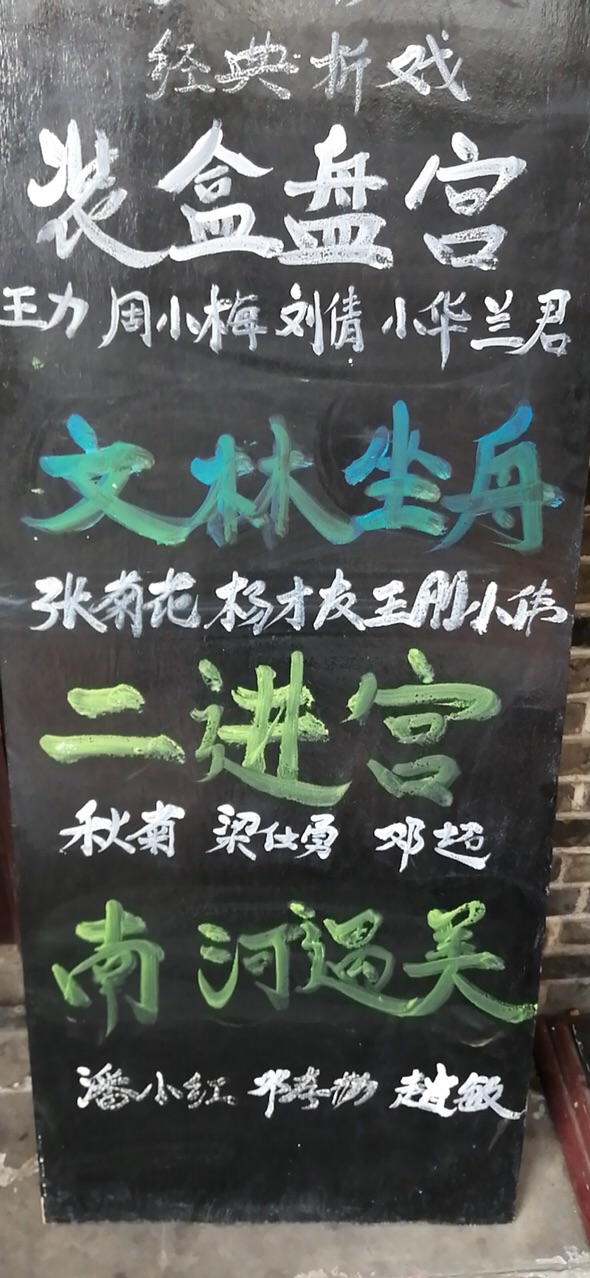 经典折戏
装盒盘宫
王力 周小梅 刘倩 小华 兰君
文林坐舟
张菊花 杨才友 王刚 小伟
二进宫
秋菊 梁仕勇 邓超
南河遇美
潘小红 赵敏